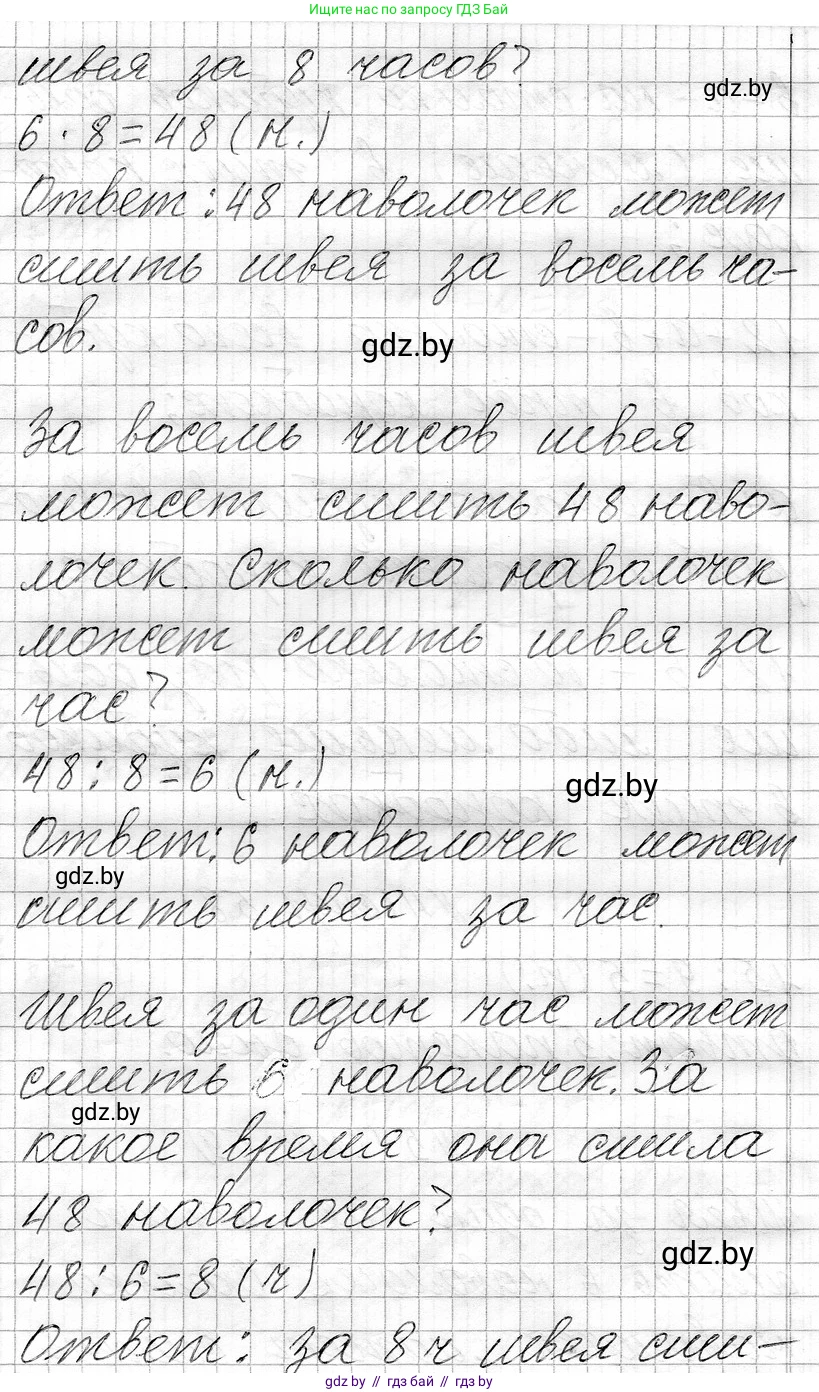 Ищите нас по запросу ГДЗ Бай
швея за 8 часов?
gdz.by
6 · 8 = 48 (н.)
Ответ: 48 наволочек может
сшить швея за восемь ча-
сов.
gdz.by
За восемь часов швея
может сшить 48 наво-
лочек. Сколько наволочек
может сшить швея за
час?
48 : 8 = 6 (н.)
gdz.by
Ответ: 6 наволочек может
gdz.by
сшить швея за час.
Швея за один час может
сшить 6 наволочек. За
gdz.by
какое время она сшила
48 наволочек?
gdz.by
48 : 6 = 8 (ч)
Ответ: за 8 ч швея сши-
gdz.by // гдз бай // gdz.by